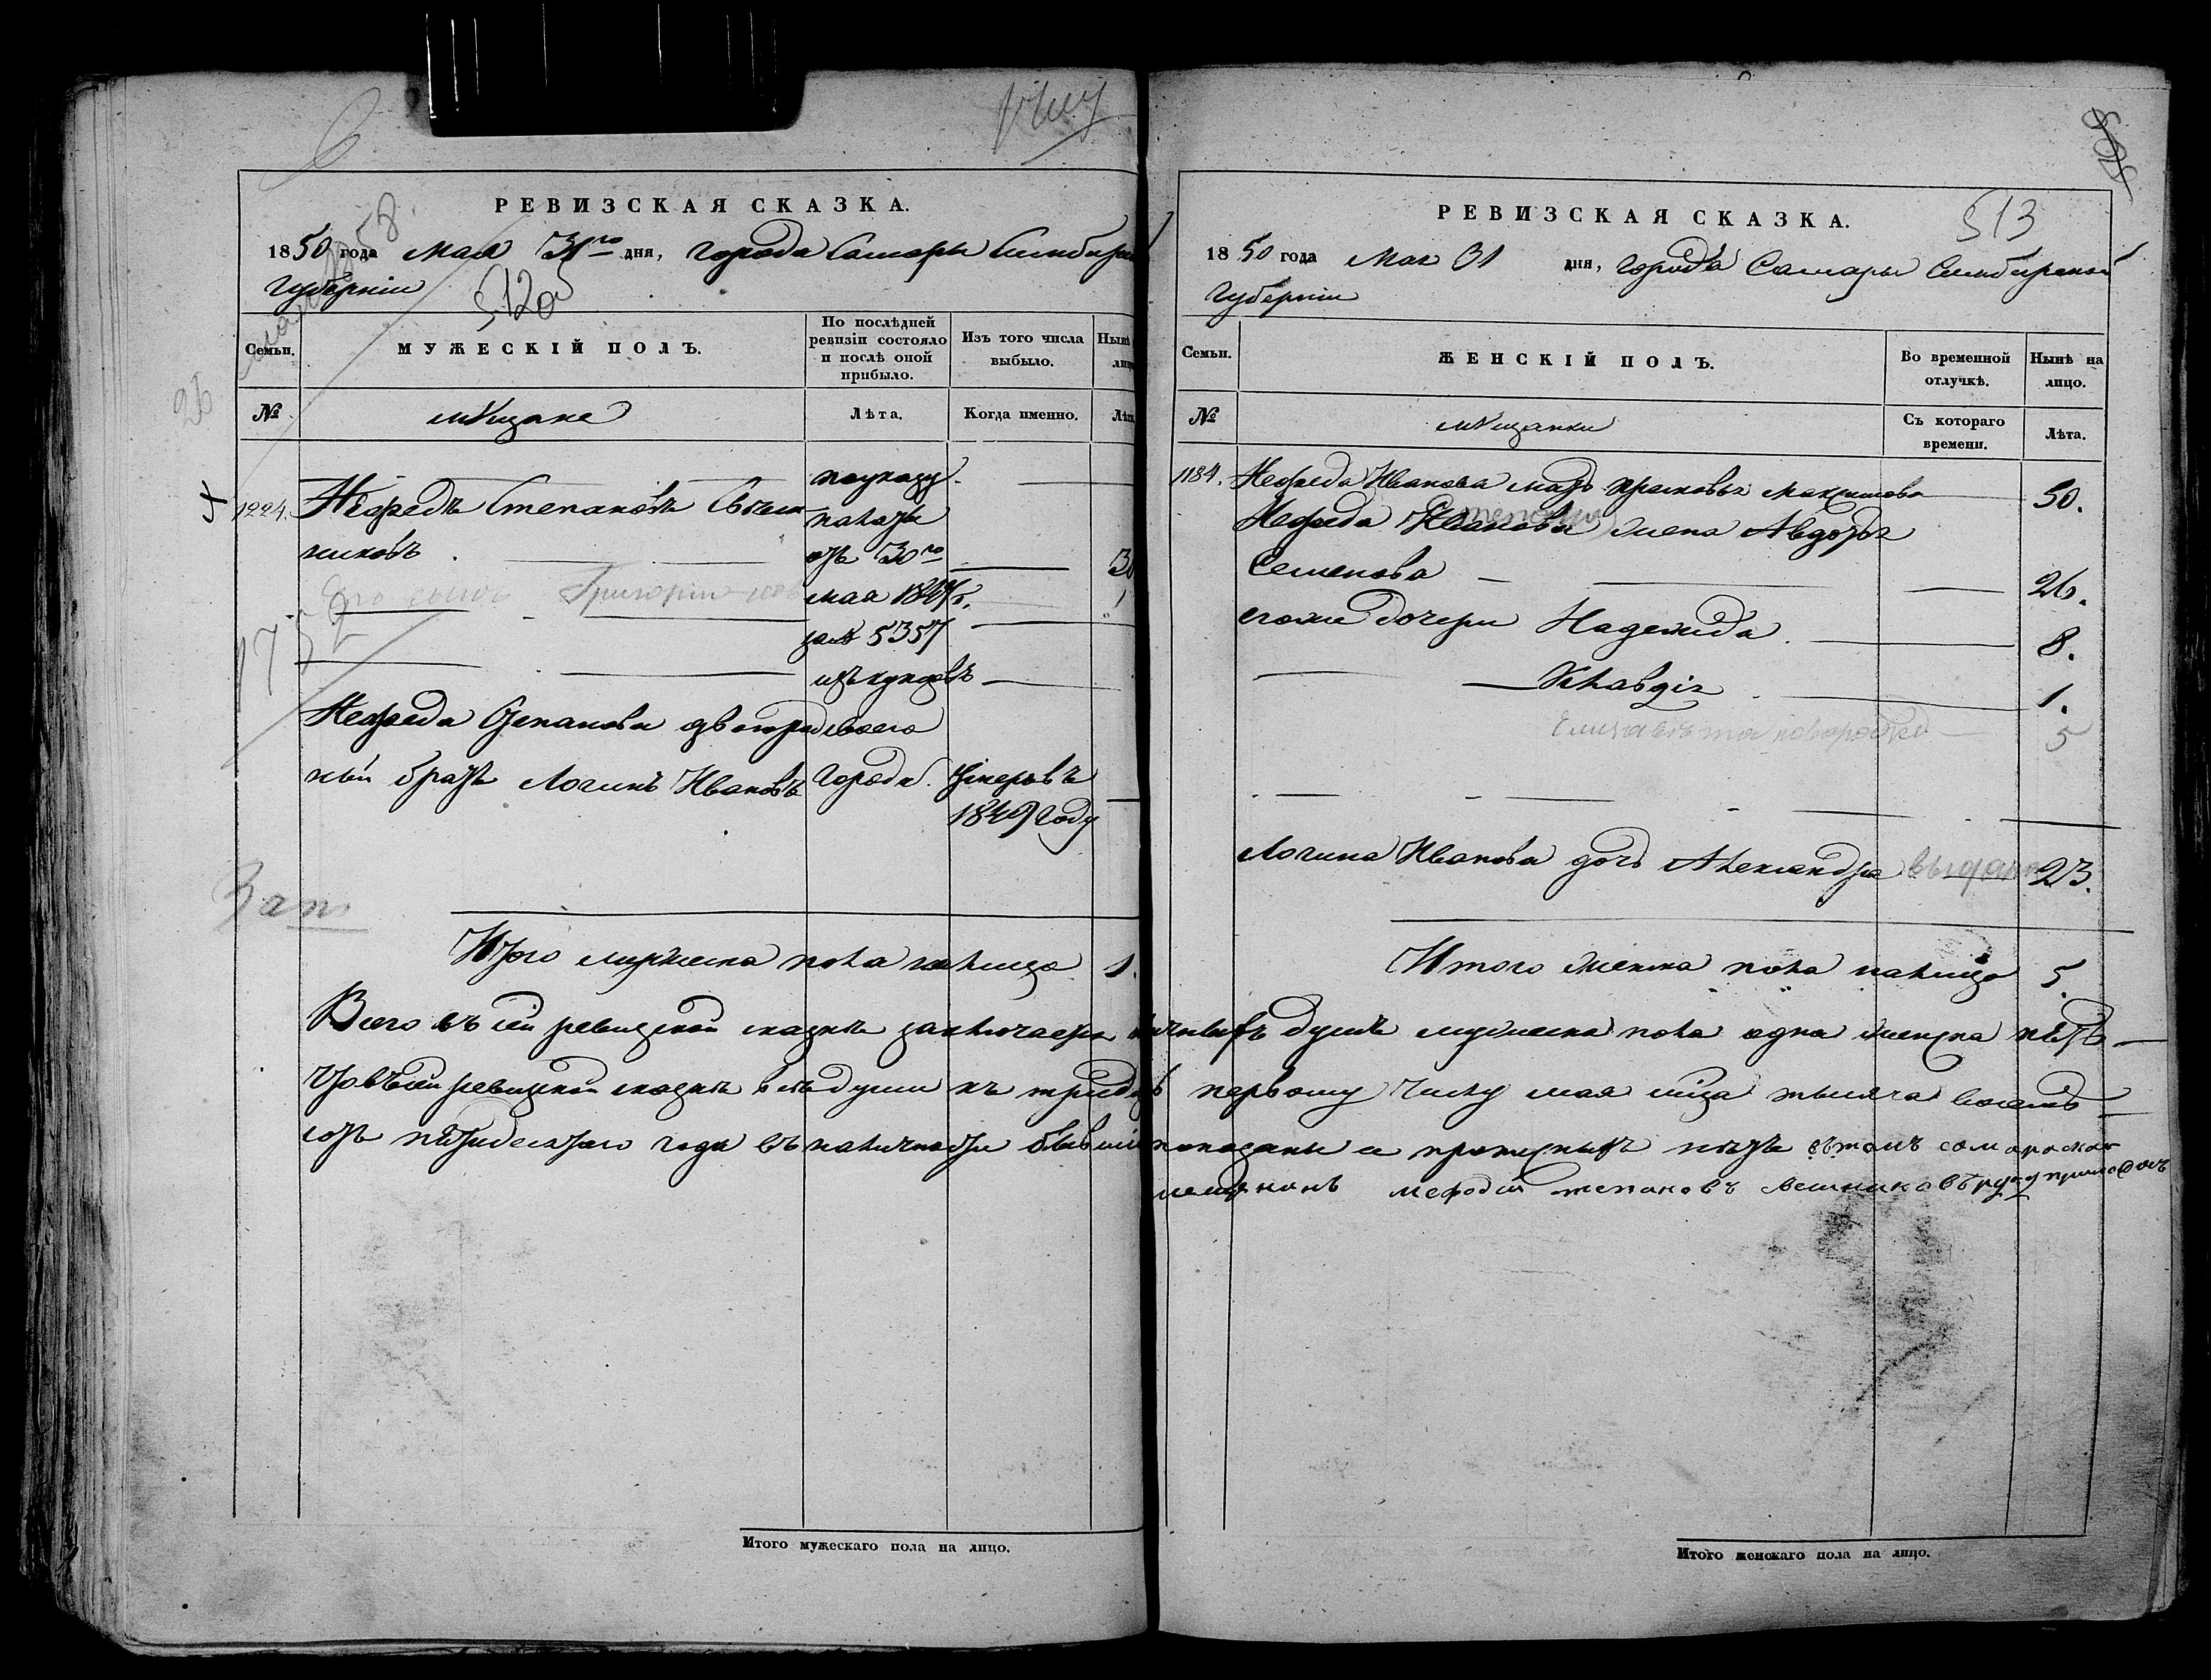 РЕВИЗСКАЯ СКАЗКА.
1850 года мая 31го дня, города Самары Симбирской
губерніи
512об
Семьи.
МУЖЕСКІЙ ПОЛЪ.
По послѣдней ревизіи состояло и послѣ оной прибыло.
Изъ того числа выбыло.
Нынѣ
№
мѣщане
Лѣта.
Когда именно.
1224.
Мефедъ Степановъ
никовъ
по указу
палаты
отъ 30го
мая 184
за № 5357
Его сынъ Григорій
Мефеда Степанова двоюрод
ный братъ Логинъ Ивановъ
города
умеръ въ
1849 году
Зап
Итого мужеска пола налицо 1.
РЕВИЗСКАЯ СКАЗКА.
513
1850 года мая 31 дня, города Самары Симбирской
губерніи
Семьи.
ЖЕНСКІЙ ПОЛЪ.
Во временной отлучкѣ.
Нынѣ на лицо.
№
мѣщанки
Съ котораго времени.
Лѣта.
1184. Мефеда Иванова мать Прасковья Максимова 50.
Мефеда Иванова жена Авдотья
Семенова 26.
его же дочери Надежда 8.
Клавдія 1.
Елизавета 5
Логина Иванова дочь Александра 23.
Итого женска пола налицо 5.
Всего въ сей ревизской сказкѣ заключается наличныхъ душъ мужеска пола одна женска пять
Что въ сей ревизской сказкѣ всѣ души къ тридцать первому числу мая мца тысяча восемь
сотъ пятидесятаго года въ наличности бывшіе показаны и прописныхъ нѣтъ въ томъ самарской
мещанинъ мефодій степановъ руку приложилъ
Итого мужескаго пола на лицо.
Итого женскаго пола на лицо.